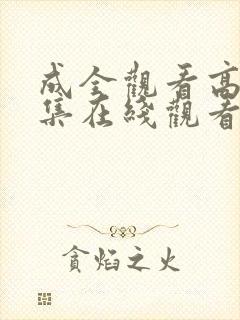 成全觀看高
集在綫觀看
貪焰之火